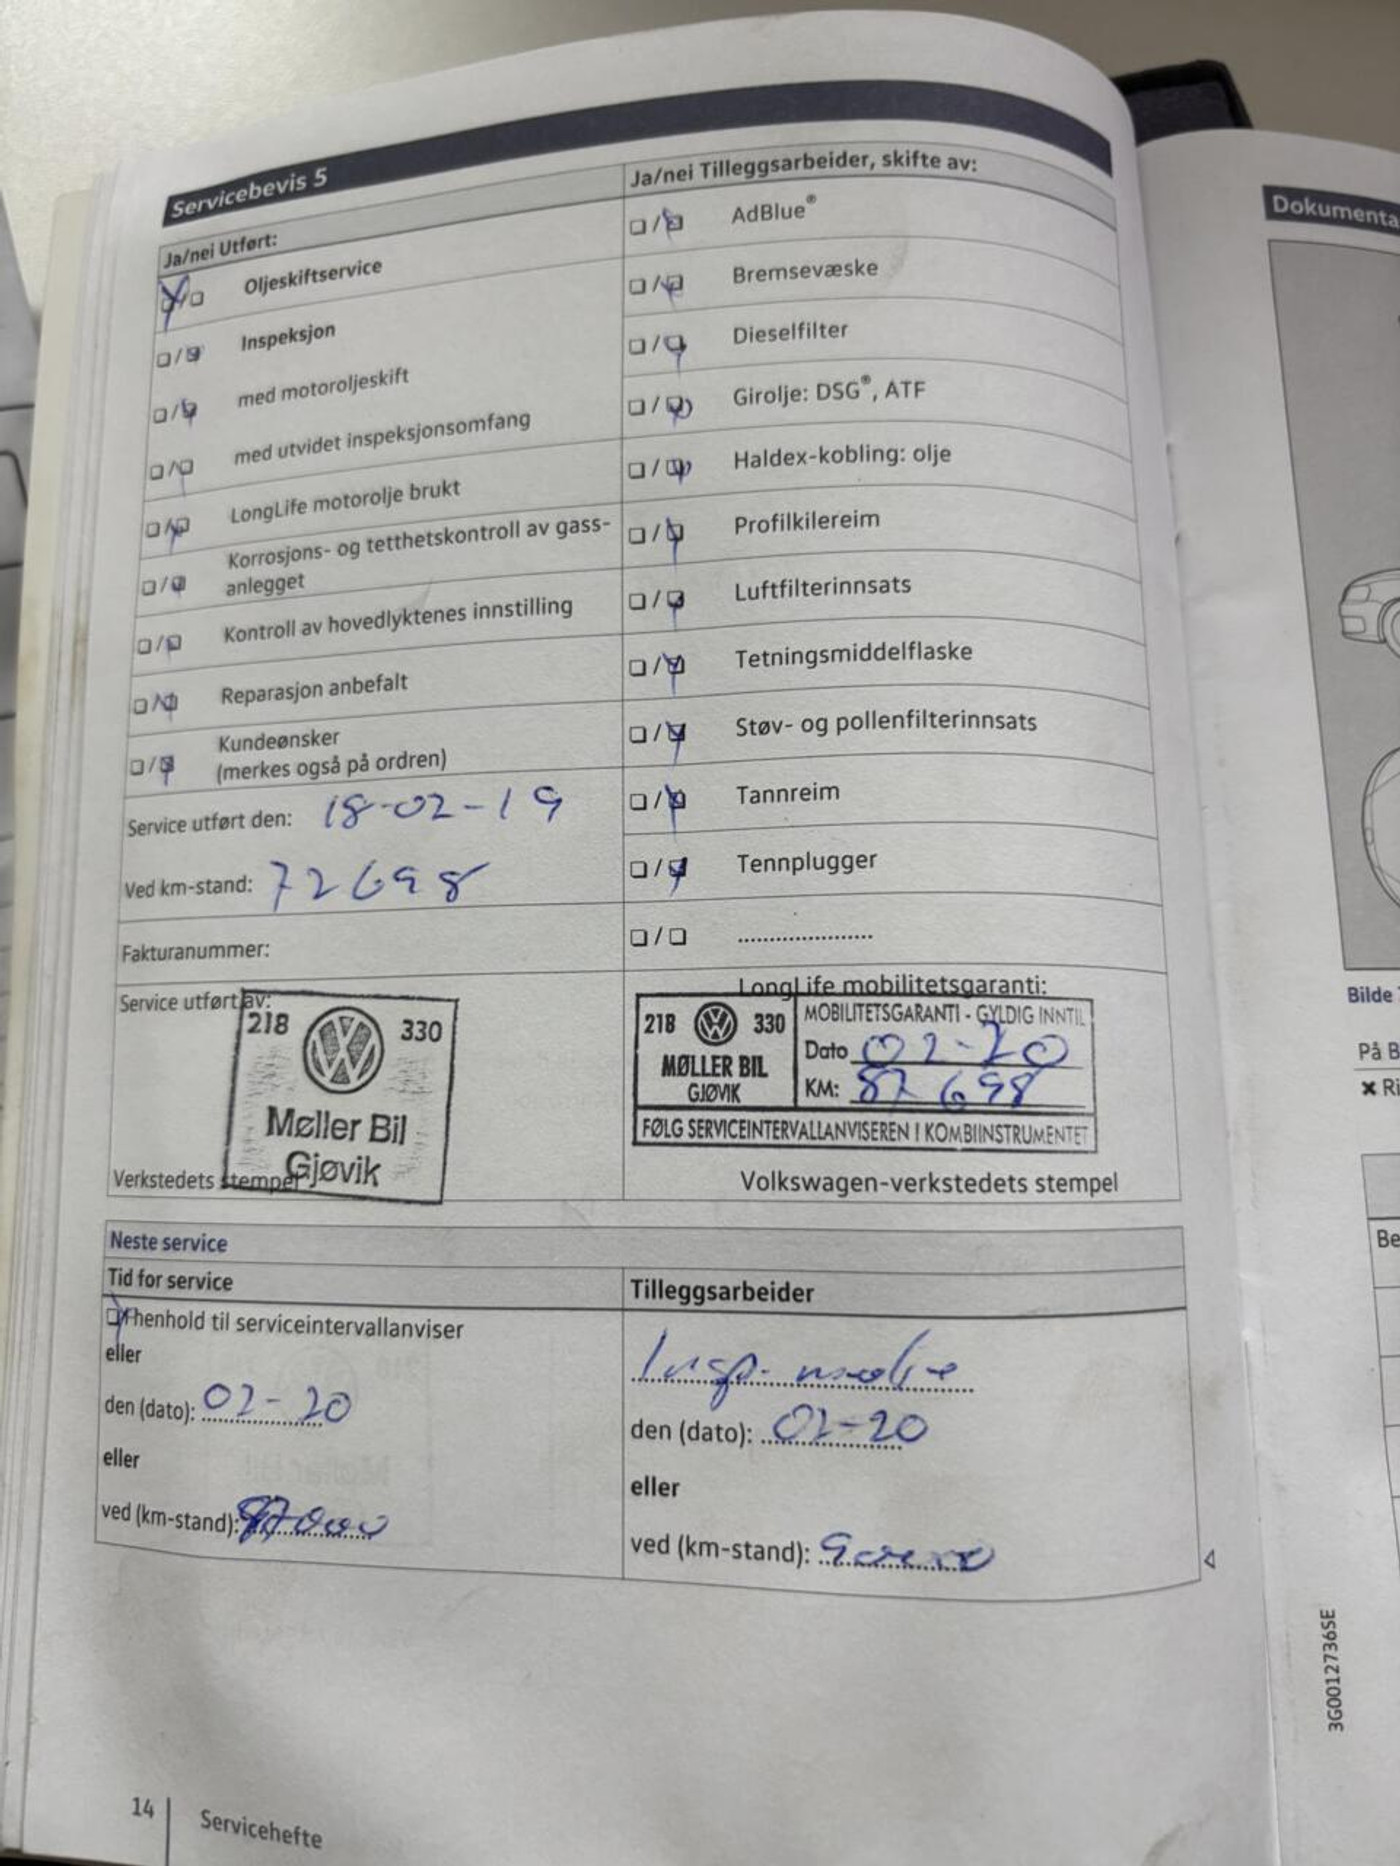 Servicebevis 5
Ja/nei Utført:
☒/☐ Oljeskiftservice
☐/☒ Inspeksjon
☐/☒ med motoroljeskift
☐/☒ med utvidet inspeksjonsomfang
☐/☒ LongLife motorolje brukt
☐/☒ Korrosjons- og tetthetskontroll av gass-
anlegget
☐/☒ Kontroll av hovedlyktenes innstilling
☐/☒ Reparasjon anbefalt
☐/☒ Kundeønsker
(merkes også på ordren)
Service utført den: 18-02-19
Ved km-stand: 72698
Fakturanummer:
Service utført av:
218 330
Møller Bil
Gjøvik
Verkstedets stempel
Ja/nei Tilleggsarbeider, skifte av:
☐/☒ AdBlue®
☐/☒ Bremsevæske
☐/☒ Dieselfilter
☐/☒ Girolje: DSG®, ATF
☐/☒ Haldex-kobling: olje
☐/☒ Profilkilereim
☐/☒ Luftfilterinnsats
☐/☒ Tetningsmiddelflaske
☐/☒ Støv- og pollenfilterinnsats
☐/☒ Tannreim
☐/☒ Tennplugger
☐/☐ .....................
LongLife mobilitetsgaranti:
218 330
MØLLER BIL
GJØVIK
MOBILITETSGARANTI - GYLDIG INNTIL
Dato 02-20
KM: 87698
FØLG SERVICEINTERVALLANVISEREN I KOMBIINSTRUMENTET
Volkswagen-verkstedets stempel
Neste service
Tid for service
☒ I henhold til serviceintervallanviser
eller
den (dato): 02-20
eller
ved (km-stand): 87000
Tilleggsarbeider
Insp. m olje
den (dato): 02-20
eller
ved (km-stand):
14 Servicehefte
Dokumenta
Bilde
På B
✖ Ri
Be
3G0012736SE